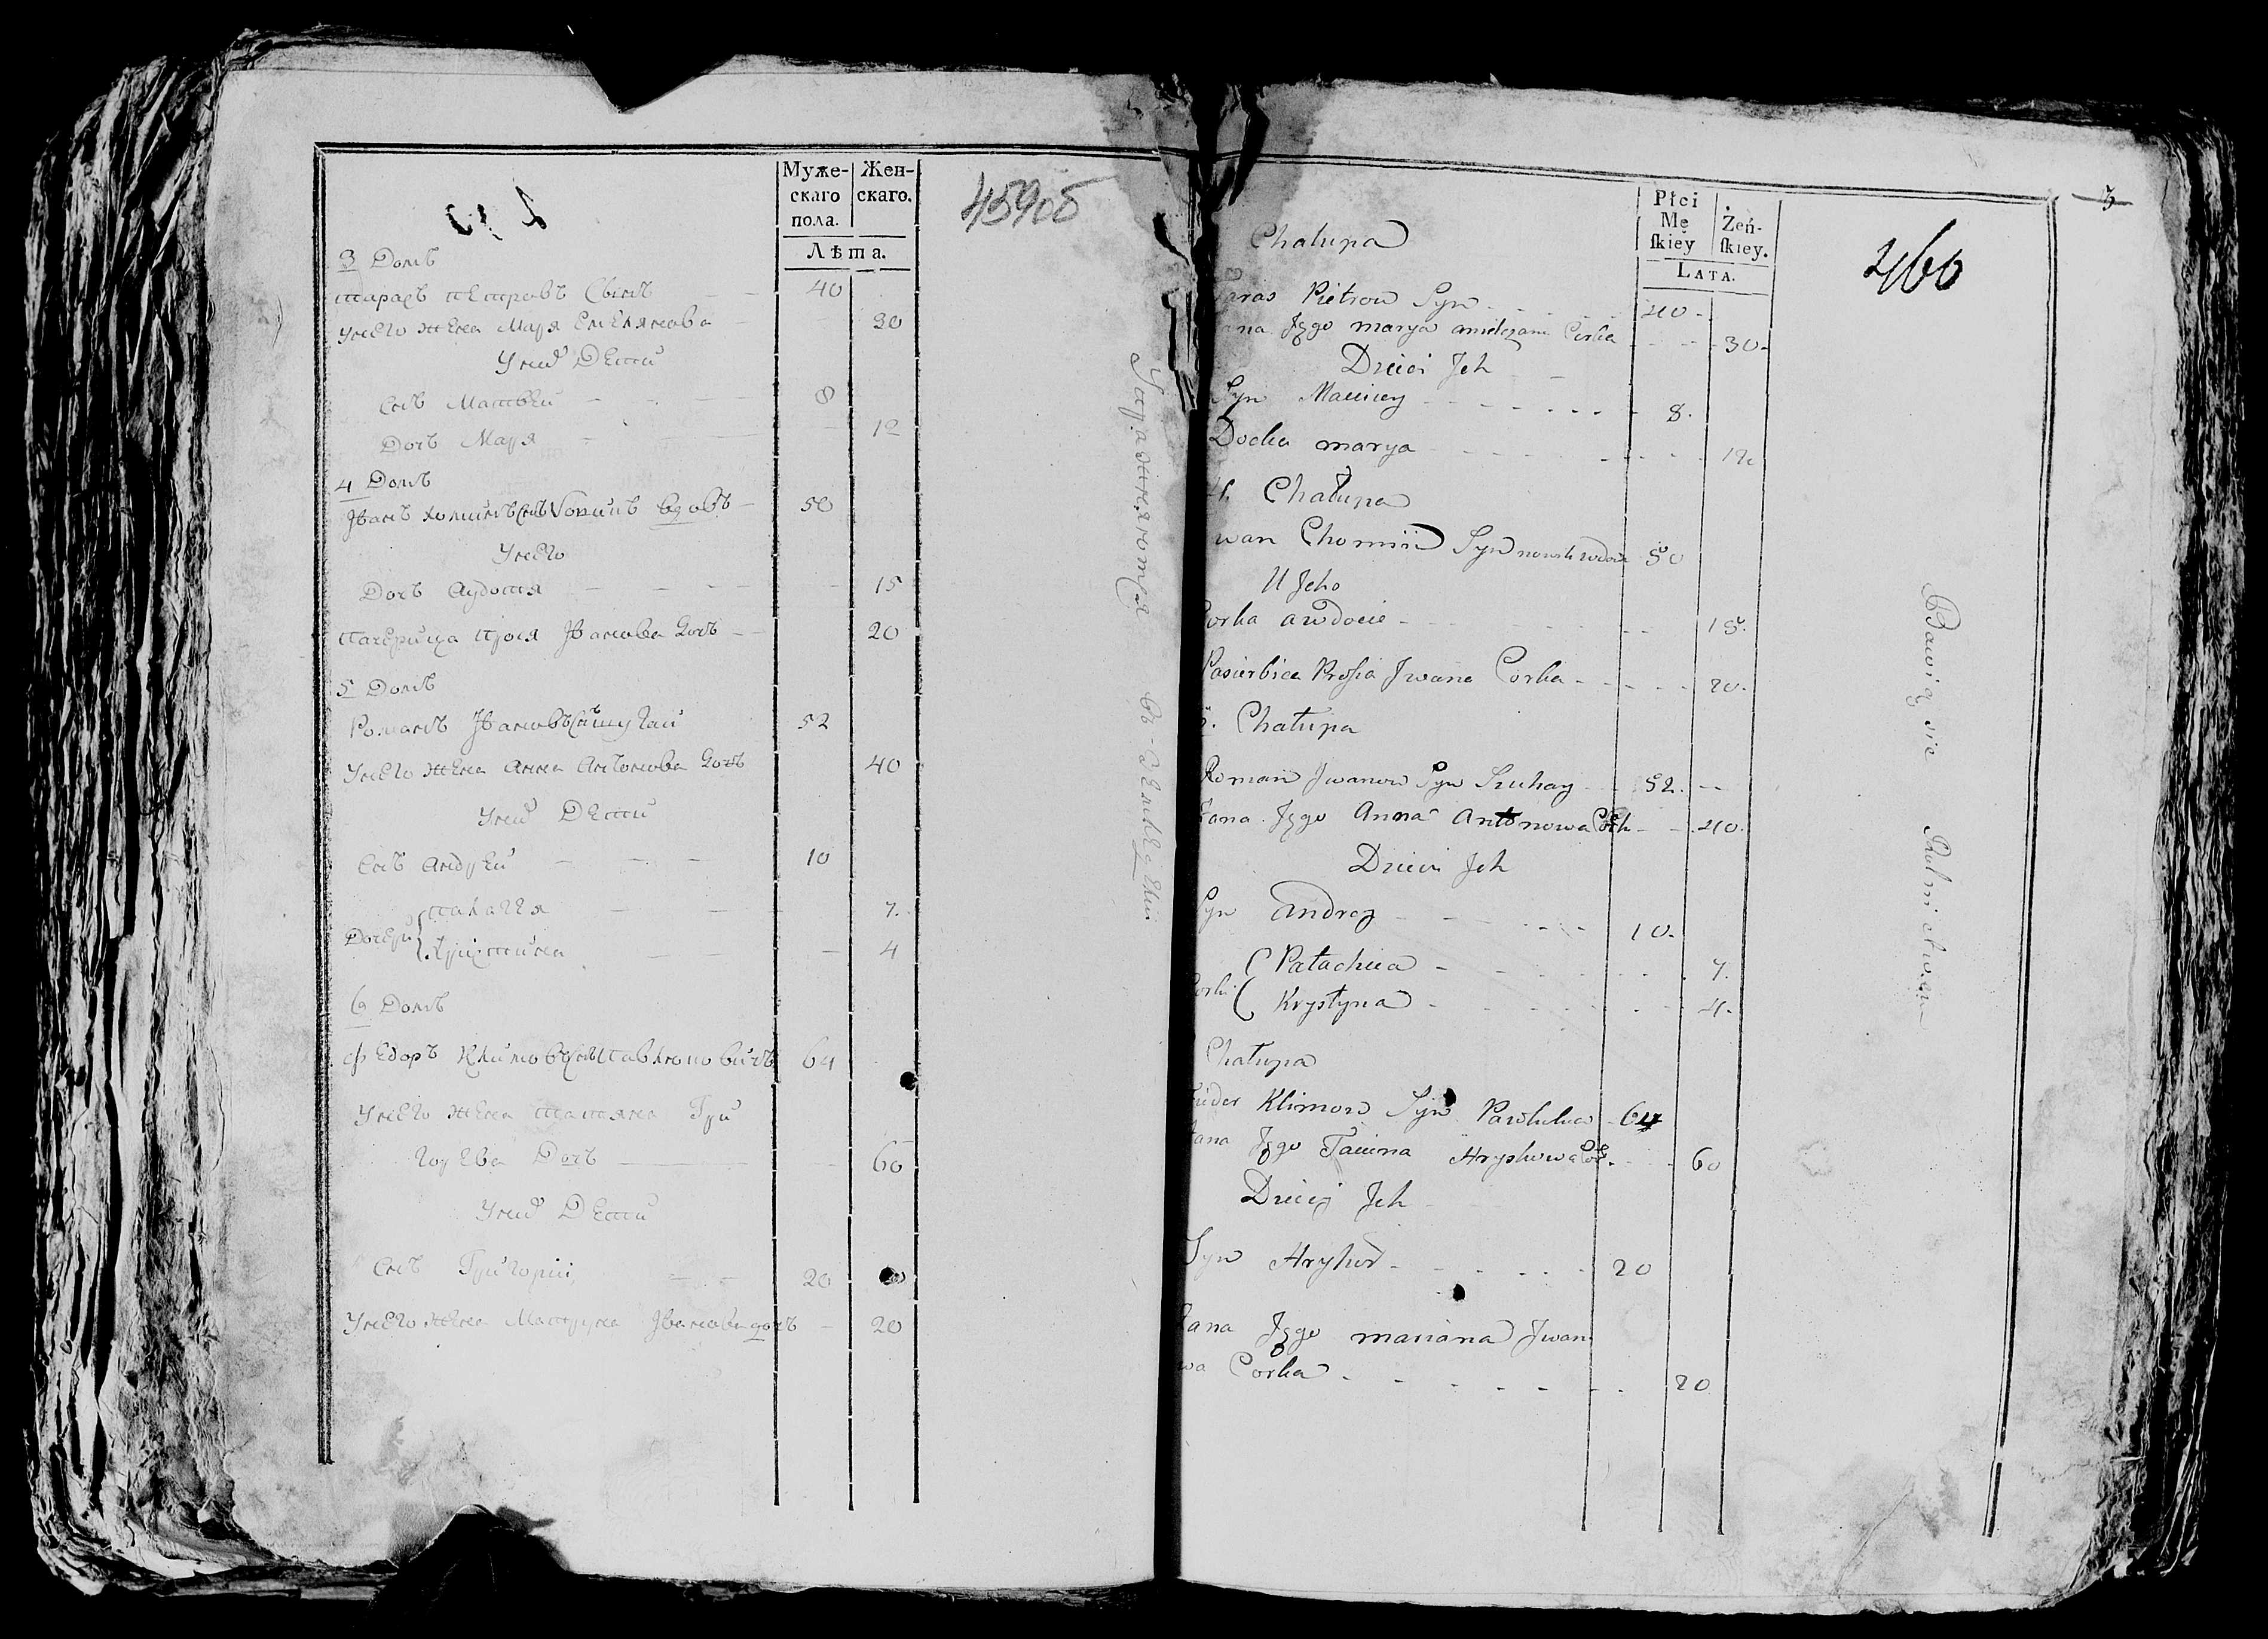 Муже-
скаго
пола.
Жен-
скаго.
Лѣта.
459об
3 Домъ
Тарасъ Петровъ Сынъ 40
Унего жена Маря Емелянова 30
Унихъ Дети
Снъ Матвеи 8
Дочъ Маря 12
4 Домъ
Іванъ Хоминъ Снъ вдовъ 50
Унего
Дочъ Аудотя 15
Пачерица Прося Іванова Дочъ 20
5 Домъ
Романъ Івановъ Снъ Шугаи 52
Унего жена Анна Антонова Дочъ 40
Унихъ Дети
Снъ Андреи 10
Дочери Палагея 7
Христина 4
6 Домъ
Федоръ Климовъ Снъ Павлюповичъ 64
Унего жена Татяна Гри
горева Дочъ 60
Унихъ Дети
Снъ Григории 20
Унего жена Матруна Іванова дочъ 20
Упражняются в земледелии
Płci
Mę
ſkiey
Żeń-
ſkiey.
Lata.
460
3
Chałupa
Taras Pietrow Syn 40
Jego marya Corka 30
Dzieci Jch
Syn Maciey 8
Docka marya 12
4. Chałupa
wan Chomin Syn wdow 50
U Jeho
orka awdocie 15
Pasierbica Prosia Jwana Corka 20
5. Chałupa
Roman Jwanow Syn Szuhay 52
żana Jego Anna Antonowa Cork 40
Dzieci Jch
Syn Andrey 10
orki Pałachiia 7
Krystyna 4
Chałupa
Fiuder Klimow Syn 64
żana Jego Taciana Hryhorowa Cor 60
Dzieci Jch
Syn Hryhor 20
żana Jego mariana Jwan
wa Corka 20
Bawią się Rolnictwem